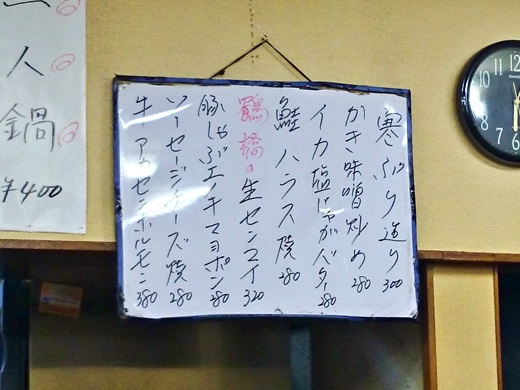 寒ぶり造り 300
かき味噌炒め 280
イカ塩じゃがバター 280
鮭ハラス焼 280
鶴橋の生センマイ 320
豚しゃぶエノキマヨポン 280
ソーセージチーズ焼 280
牛アカセンホルモン 380
人
鍋
¥400
12
11
10
9
8
7
6